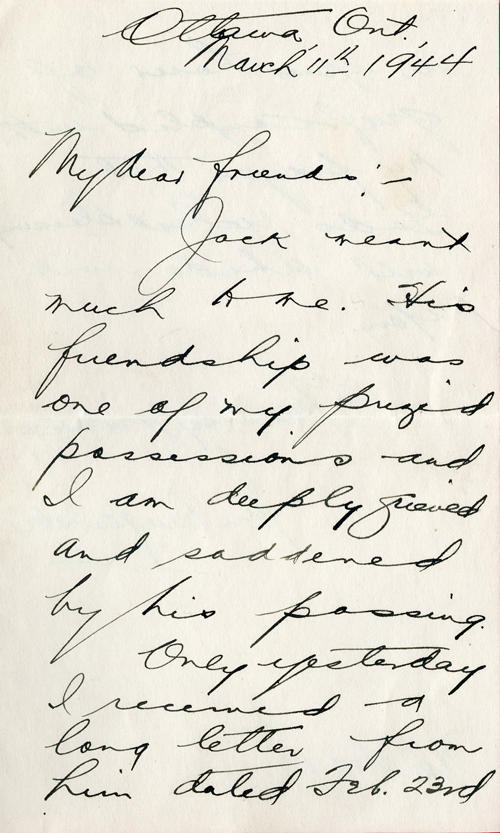 Ottawa, Ont.,
March 11th 1944
My dear friends:—
Jack meant
much to me. His
friendship was
one of my prized
possessions and
I am deeply grieved
and saddened
by his passing.
Only yesterday
I received a
long letter from
him dated Feb. 23rd